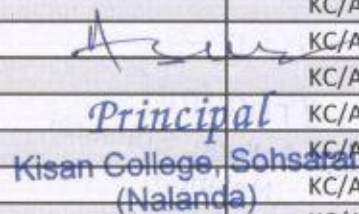 KC/A
KC/A
KC/A
Principal KC/A
KC/A
Kisan College, Sohsarai
(Nalanda) KC/A